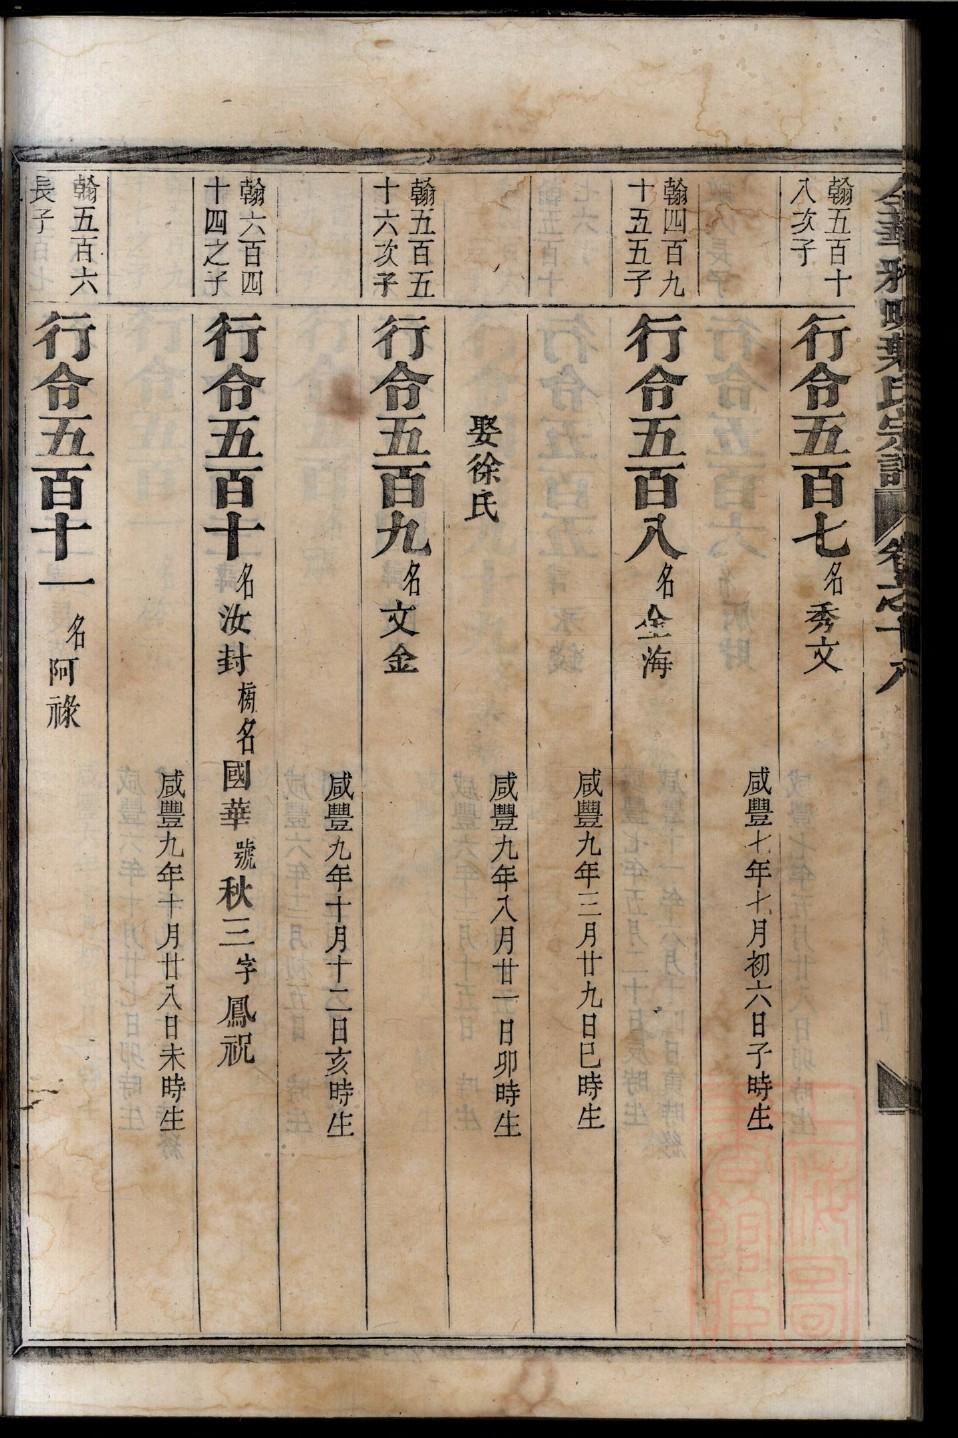 葉氏宗譜 卷之十八
翰五百十
八次子
行令五百七 名秀文
咸豐七年七月初六日子時生
翰四百九
十五五子
行令五百八 名金海
咸豐九年三月廿九日巳時生
娶徐氏
咸豐九年八月廿一日卯時生
翰五百五
十六次子
行令五百九 名文金
咸豐九年十月十二日亥時生
翰六百四
十四之子
行令五百十 名汝封 榜名國華 號秋三 字鳳祝
咸豐九年十月廿八日未時生
翰五百六
長子
行令五百十一 名阿祿